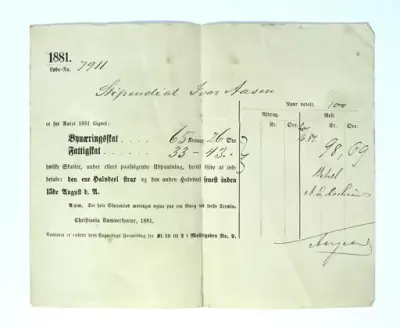 1881.
Løbe-No. 7911
Stipendiat Ivar Aasen
er for Aaret 1881 lignet:
Bynæringsskat 65 Kroner 26 Øre
Fattigskat 33 - 43 -
hvilke Skatter, under ellers paafølgende Udpantning, herved
betale: den ene Halvdeel strax og den anden Halvdeel senest inden
15de August d. A.
Anm. Det hele Skattebeløb modtages ogsaa paa en Gang ved første Termin.
Christiania Kæmnerkontor, 1881.
Kontoret er aabent hver Søgnedags Formiddag fra Kl. til i Møllergaden No. 9.
Naar betalt. 
Afdrag. Rest.
Kr. Øre Kr. Øre
98,69
Betalt